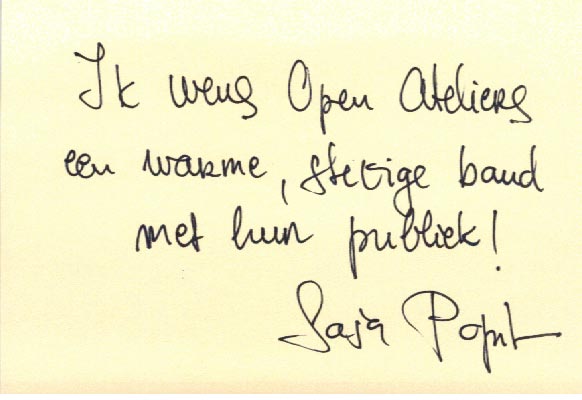 Ik wens Open Ateliers
een warme, stevige band
met hun publiek!
Sasja